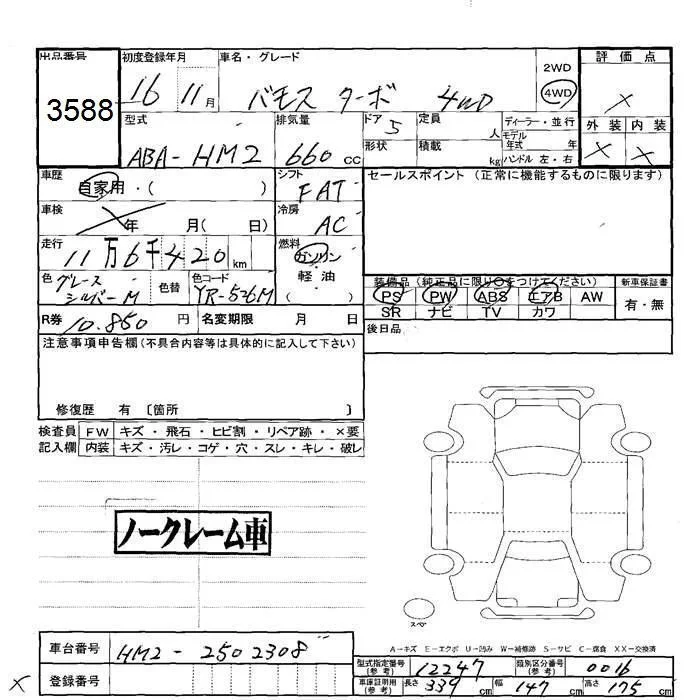 出品番号 初度登録年月 車名・グレード 評価点
3588 16 11月 バモス ターボ 4WD 2WD 4WD ×
外装 内装
× ×
型式 排気量 ドア 5 定員 人 ディーラー・並行
ABA-HM2 660cc 形状 積載 kg モデル年式 年
ハンドル 左・右
車歴 自家用・( ) シフト FAT セールスポイント (正常に機能するものに限ります)
車検 年 月( 日) 冷房 AC
走行 11万6千420km 燃料 ガソリン
軽油
( )
色 グレースシルバーM 色替 色コード YR-536M
装備品 (純正品に限り○をつけてください) 新車保証書
PS PW ABS エアB AW 有・無
SR ナビ TV カワ
R券 10.850円 名変期限 月 日 後日品
注意事項申告欄(不具合内容等は具体的に記入して下さい)
修復歴 有 〔箇所 〕
検査員 FW キズ・飛石・ヒビ割・リペア跡・×要
記入欄 内装 キズ・汚レ・コゲ・穴・スレ・キレ・破レ
ノークレーム車
スペア
A-キズ E-エクボ U-凹み W-補修跡 S-サビ C-腐食 XX-交換済
車台番号 HM2-2502308
型式指定番号(参考) 12247 類別区分番号(参考) 0016
× 登録番号
車庫証明用(参考) 長さ 339cm 幅 147cm 高さ 175cm